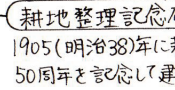 耕地整理記念
1905(明治38)年に
50周年を記念して建